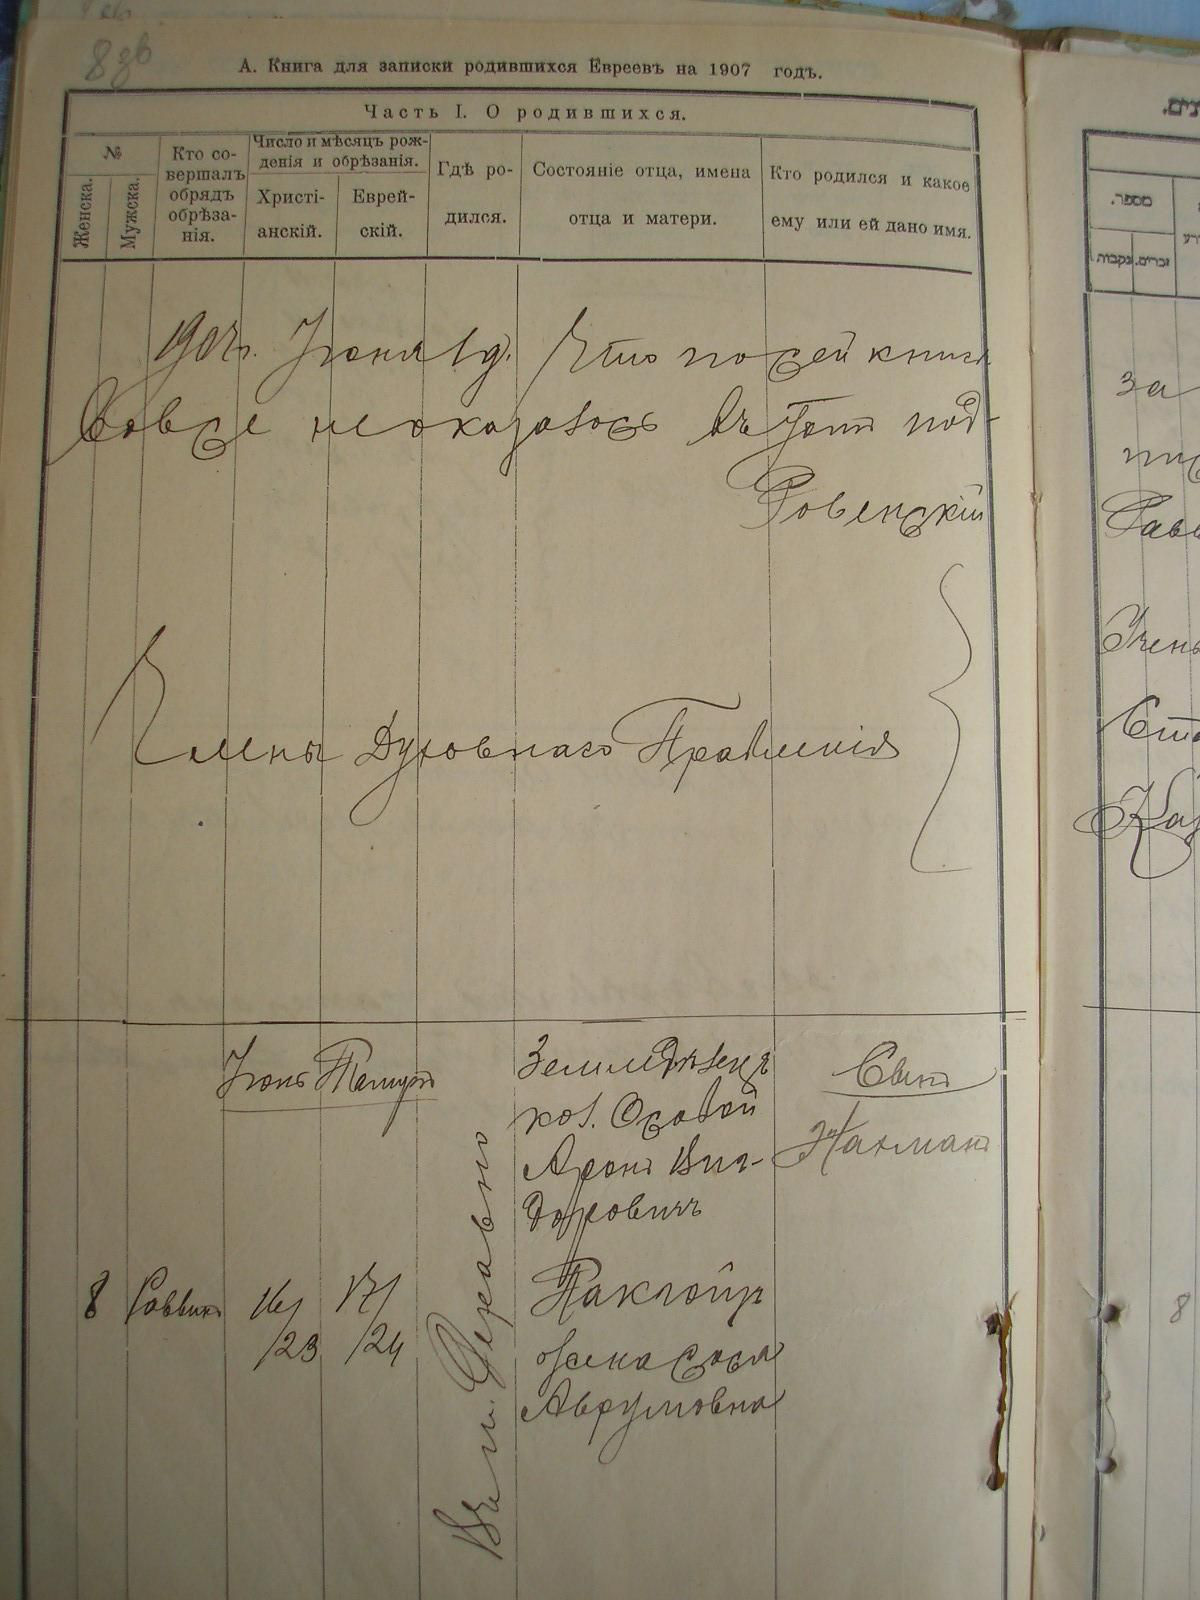 8зв
А. Книга для записки родившихся Евреевъ на 1907 годъ.
Часть I. О родившихся.
№
Женска.
Мужска.
Кто со-
вершалъ
обрядъ
обрѣза-
нія.
Число и мѣсяцъ рож-
денія и обрѣзанія.
Христі-
анскій.
Еврей-
скій.
Гдѣ ро-
дился.
Состояніе отца, имена
отца и матери.
Кто родился и какое
ему или ей дано имя.
1907г. Іюня 1д. Что по сей книгѣ
не оказалось въ томъ под-
Ровенскій
Члены Духовнаго Правленія
Іюнь Тамузъ
8
Раввинъ
16/
/23
17/
/24
Земледѣлецъ
кол. Осовой
Аронъ Виг-
доровичъ
жена Сося
Аврумовна
Сынъ
Нахманъ
מספר.
זכרים.
נקבות
за
Учень
Ста
Каз
8